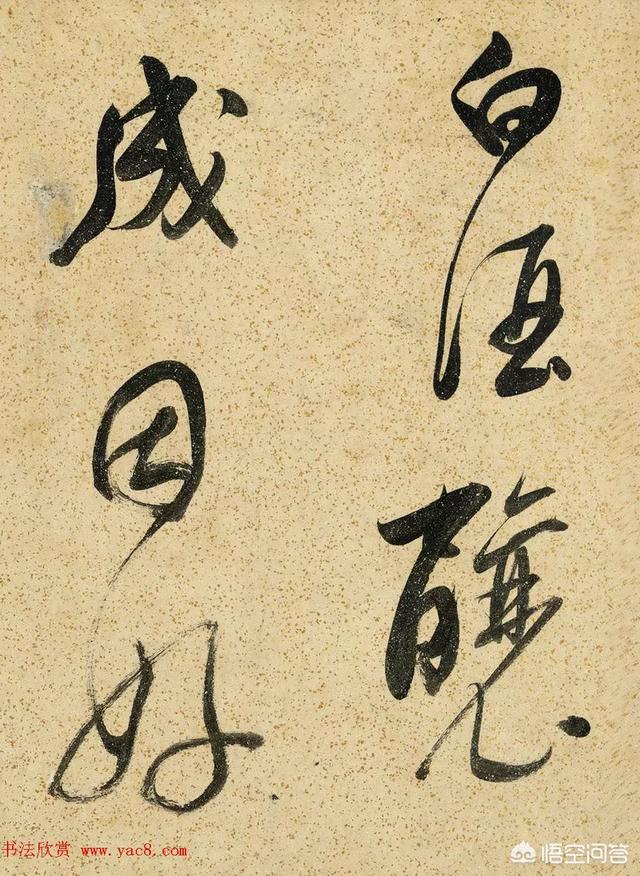 白酒釀
成因好
书法欣赏 www.yac8.com
悟空问答